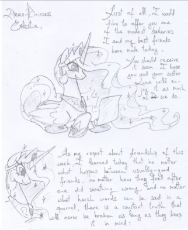 Dear Princess
Celestia.
First of all, I would
like to offer you one
of the modest bakeries
I and my best friends
have made today.
You should receive
it soon. I hope
you and your sister
Luna will
as much as
I do.
As my report about friendship of this
week I learned today that no matter
what happens between usually good
friends, no matter how they feel after
one did something wrong, and no matter
what harsh words can be said in a
quarrel, there is a useful truth that
will never be broken as long as they keep
it in mind: